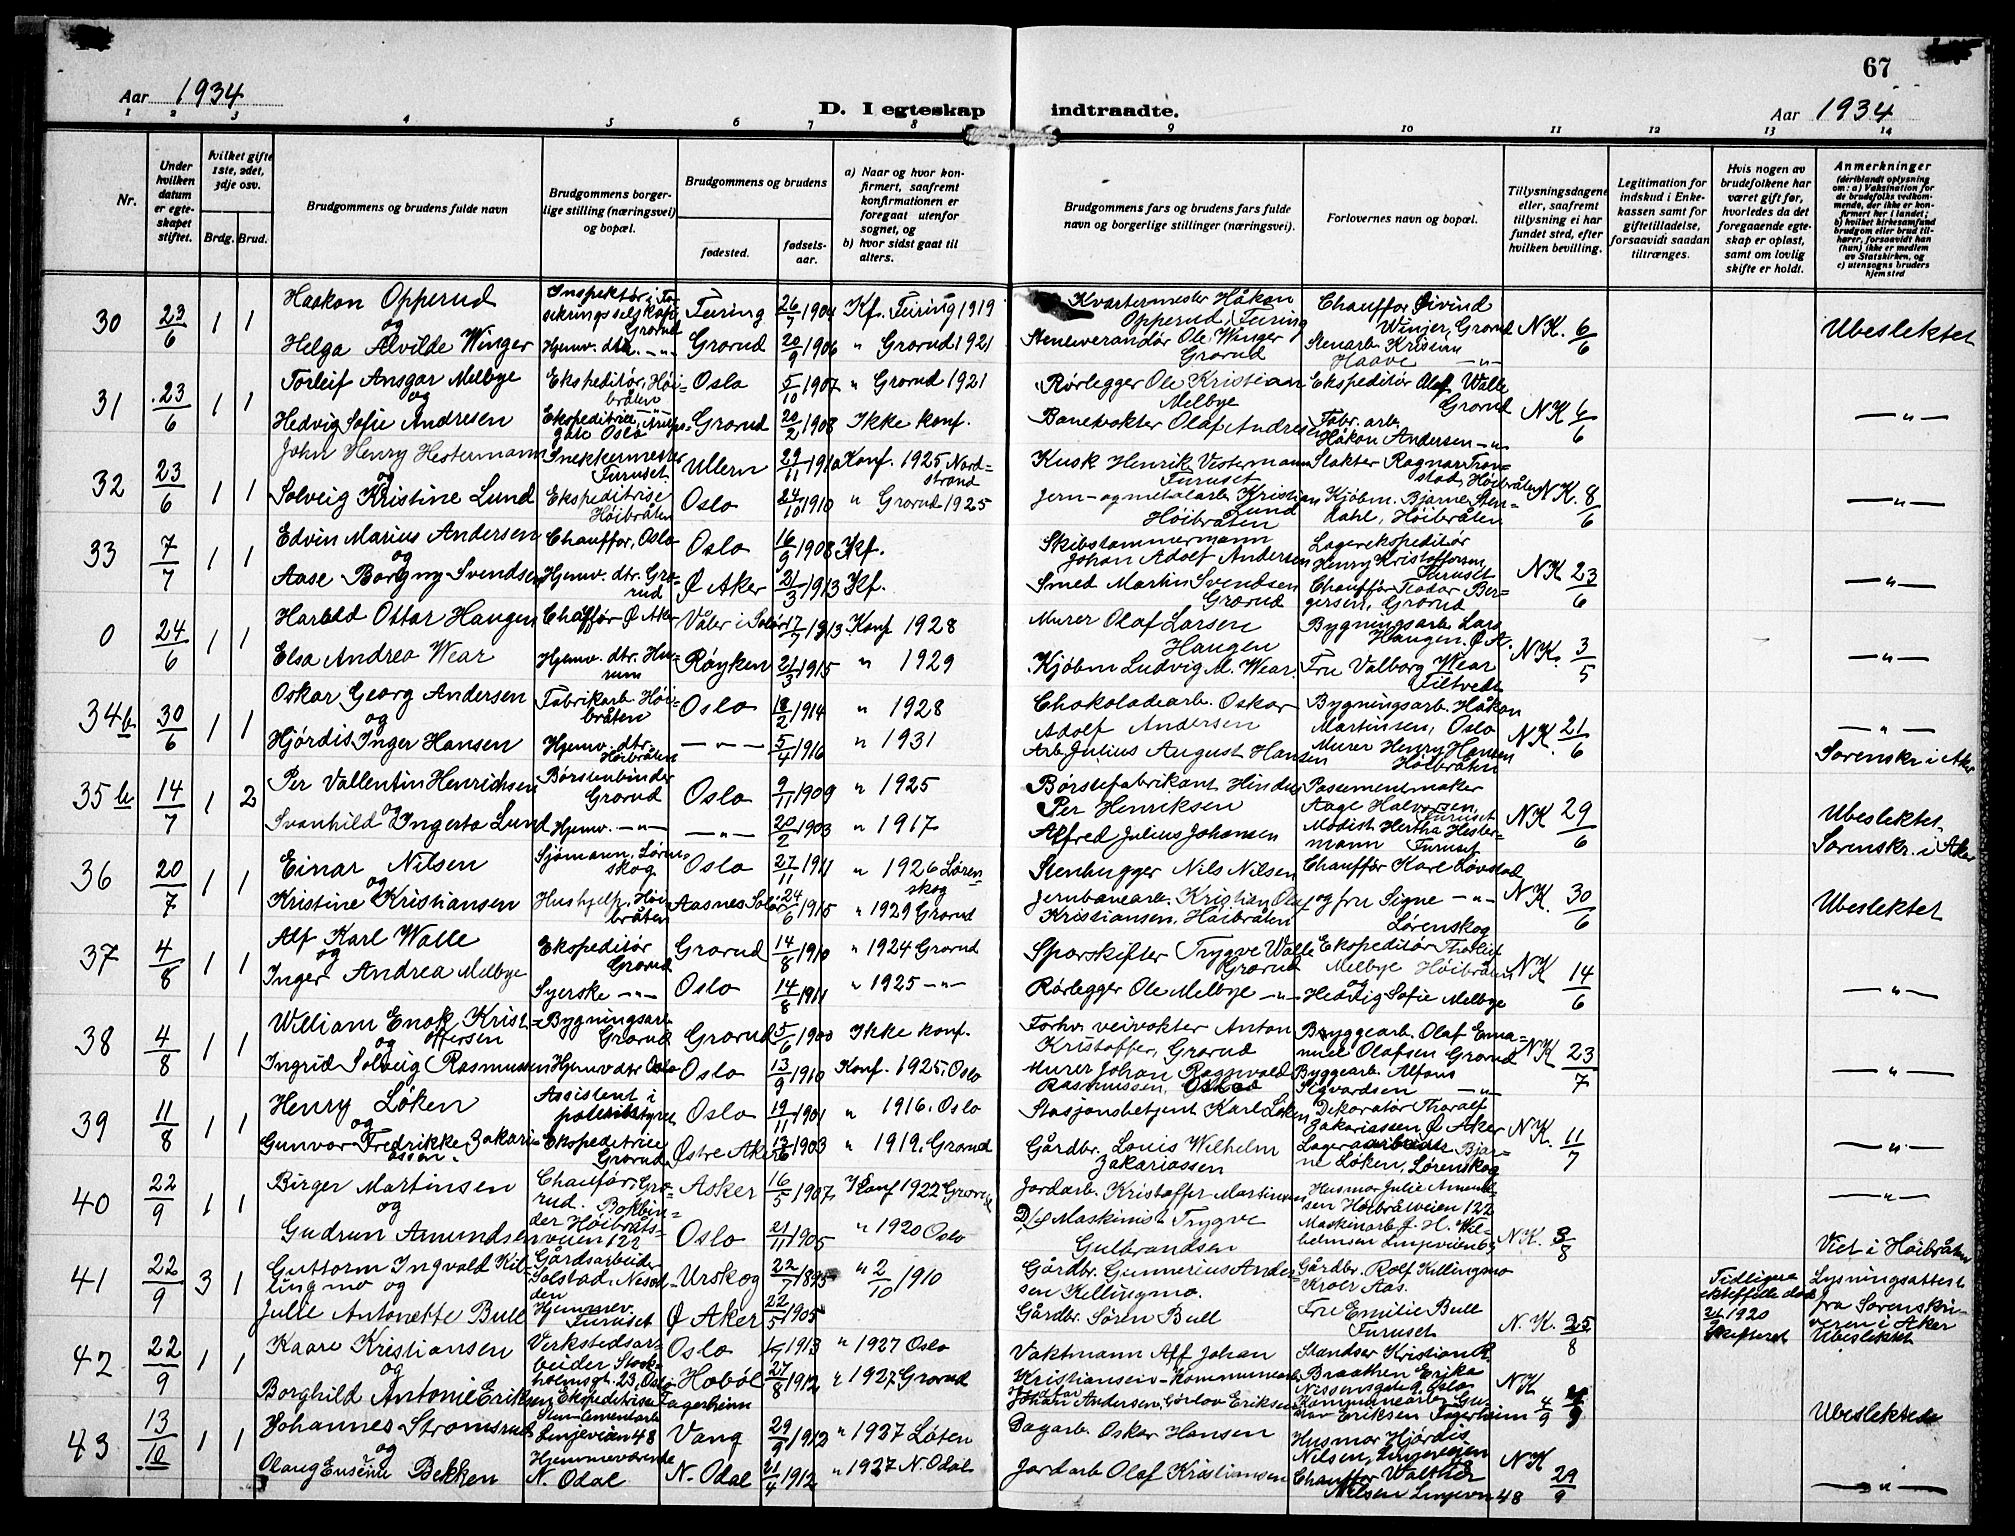 67
Aar 1934
D. I egteskap indtraadte.
Aar 1934
1 2 3 4 5 6 7 8 9 10 11 12 13 14
Nr.
Under hvilken datum er egteskapet stiftet.
hvilket gifte 1ste, 2det, 3dje osv.
Brdg. Brud.
Brudgommens og brudens fulde navn
Brudgommens borgerlige stilling (næringsvei) og bopæl.
Brudgommens og brudens
fødested.
fødselsaar.
a) Naar og hvor konfirmert, saafremt konfirmationen er foregaat utenfor sognet, og
b) hvor sidst gaat til alters.
Brudgommens fars og brudens fars fulde navn og borgerlige stillinger (næringsvei).
Forlovernes navn og bopæl.
Tillysningsdagene eller, saafremt tillysning ei har fundet sted, efter hvilken bevilling.
Legitimation for indskud i Enkekassen samt for giftetilladelse, forsaavidt saadan tiltrænges.
Hvis nogen av brudefolkene har været gift før, hvorledes da det foregaaende egteskap er opløst, samt om lovlig skifte er holdt.
Anmerkninger
(deriblandt oplysning om: a) Vaksination for de brudefolks vedkommende, der ikke er konfirmert her i landet; b) hvilket kirkesamfund brudgom eller brud tilhører, forsaavidt han (hun) ikke er medlem av Statskirken, og c) utensogns bruders hjemsted
30 23/6 1 1 Haakon Opperud Inspektør i Forsikringsselskap, Grorud Feiring 26/7 1904 Kf. Feiring 1919 Kvartermester Håkon Opperud, Feiring Chauffør Øivind Winjer, Grorud N.K. 6/6 Ubeslektet
og Helga Alvilde Winger Hjemv. dtr. —"— Grorud 20/9 1906 " Grorud 1921 Stenleverandør Ole Winger Grorud Stenarb. Kristian Haave —"—
31 23/6 1 1 Torleif Ansgar Melbye Ekspeditør, Høibråten Oslo 5/10 1907 " Grorud 1921 Rørlegger Ole Kristian Melbye Ekspeditør Olaf Walle Grorud N.K. 6/6 —"—
og Hedvig Sofie Andresen Ekspeditrise, gate Oslo Grorud 20/2 1908 Ikke konf. Banevokter Olaf Andresen Fabr. arb. Håkon Andersen —"—
32 23/6 1 1 John Henry Hestermann Snekkermester Furuset Ullern 29/11 1910 Konf. 1925 Nordstrand Kusk Henrik Vestermann Furuset Slakter Ragnar Tronstad, Høibråten N.K. 8/6 —"—
og Solveig Kristine Lund Ekspeditrise Høibråten Oslo 24/10 1910 " Grorud 1925 Jern- og metalarb. Kristian Lund Høibråten Kjøbm. Bjarne Stendahl, Høibråten
33 7/7 1 1 Edvin Marius Andersen Chauffør, Oslo Oslo 16/9 1908 Kf. Skibstømmermann Johan Adolf Andersen Lagerekspeditør Henry Kristoffersen, Furuset N.K. 23/6 —"—
og Aase Borgny Svendsen Hjemv. dtr. Grorud Ø Aker 21/3 1913 Kf. Smed Martin Svendsen Grorud Chauffør Teodor Bergersen, Grorud
0 24/6 1 1 Harald Ottar Haugen Chauffør Ø Aker Våler i Solør 17/7 1913 Konf 1928 Murer Olaf Larsen Haugen Bygningsarb. Lars Haugen. Ø.A. N.K. 3/5 —"—
Elsa Andrea Wear Hjemv. dtr. Husum Røyken 21/3 1915 " 1929 Kjøbm Ludvig M. Wear. Fru Valborg Wear Filtvedt
34b 30/6 1 1 Oskar Georg Andersen Fabrikarb. Høibråten Oslo 18/2 1914 " 1928 Chokoladearb. Oskar Adolf Andersen Bygningsarb. Håkon Martinsen, Oslo N.K. 21/6 —"—
og Hjördis Inger Hansen Hjemv. dtr. Høibråten —"— 5/4 1916 " 1931 Arb. Julius August Hansen Murer Henry Hansen Høibråtn Sorenskr. i Aker
35b 14/7 1 2 Per Vallentin Henrichsen Børstenbinder Grorud Oslo 9/11 1909 " 1925 Børstefabrikant Hinder Per Henriksen Passementmaker Aage Halvorsen, Furuset N.K. 29/6 Ubeslektet.
og Svanhild Ingerta Lund Hjemv. —"— —"— 20/2 1903 " 1917 Alfred Julius Johansen Modist Hertha Hestermann Furuset Sorenskr. i Aker
36 20/7 1 1 Einar Nilsen Sjømann, Lørenskog Oslo 27/11 1911 " 1926 Lørenskog Stenhugger Nils Nilsen Chauffør Kare Løvstad N.K. 30/6 Ubeslektet
og Kristine Kristiansen Hushjelp. Høibråten Aasnes Solør 24/6 1915 " 1929 Grorud Jernbanearb. Kristian Olaf Kristiansen, Høibråten og fru Signe —"— Lørenskog
37 4/8 1 1 Alf Karl Walle Ekspeditør Grorud Grorud 14/8 1910 " 1924 Grorud Sporskifter Trygve Walle Grorud Ekspeditør Thorleif Melbye Høibråten N.K. 14/6 —"—
og Inger Andrea Melbye Syerske —"— Oslo 14/8 1911 " 1925 —"— Rørlegger Ole Melbye —"— og Hedvig Sofie Melbye
38 4/8 1 1 William Enok Kristoffersen Bygningsarb Grorud Grorud 5/6 1900 Ikke konf. Forhv. veivokter Anton Kristoffer, Grorud Byggearb. Olaf Emanuel Olafsen Grorud N.K. 23/7 —"—
og Ingrid Solveig Rasmussen Hjemv dtr Oslo Oslo 13/9 1910 Konf. 1925. Oslo Murer Johan Ragnvald Rasmussen, Oslo Byggearb. Alfons Sigvardsen —"—
39 11/8 1 1 Henry Løken Assistent i politistyret Oslo 19/11 1901 " 1916. Oslo Stasjonsbetjent Karl Løken Dekoratør Thoralf Zakariassen Ø Aker N.K. 11/7 —"—
og Gunvor Fredrikke Zakariassen. Ekspeditrice Grorud Østre Aker 12/6 1903 " 1919. Grorud Gårdbr. Louis Wilhelm Zakariassen Lagerarbeider Bjarne Løken, Lørenskog
40 22/9 1 1 Birger Martinsen Chauffør, Grorud. Asker 16/5 1907 Konf 1922 Grorud Jordarb. Kristoffer Martinsen Husmor Julie Amundsen Høibråtveien 122 N.K. 3/8 —"—
og Gudrun Amundsen Bokbinder Høibråtsveien 122 Oslo 21/11 1905 " 1920 Oslo D/f Maskinist Trygve Gulbrandsen Maskinarb. J. H. Wilhelmsen Linjeveien 69 Viet i Høibråten
41 22/9 3 1 Guttorm Ingvald Killingmo og Gårdsarbeider Solstad, Nesodden Urskog 22/7 1895 " 2/10 1910 Gårdbr. Gunnerius Andersen Killingmo. Gårdbr. Rolf Killingmo Kroer Aas. N.K. 25/8 Tidligere ektefelle død 21/2 1920 Skifteret Lysningsattest fra Sorenskriveren i Aker Ubeslektet
Julie Antonette Bull Hjemmev. Furuset Ø Aker 22/5 1905 Gårdbr. Sören Bull Fru Emilie Bull Furuset
42 22/9 1 1 Kaare Kristiansen Verkstedsarbeider Stockholmsgt. 23, Oslo Oslo 1913 " 1927 Oslo Vaktmann Alf Johan Kristiansen Standser Kristian R. Braathen Erika Nissensgate 9, Oslo N.K. 4/9
og Borghild Antonie Eriksen Ekspeditrise Fagerheim Hobøl 27/8 1912 " 1927 Grorud Kommunearb. Johan Andersen Eriksen Kommunearb. Gustav Eriksen Fagerheim 4/9 Ubeslektede
43 13/10 1 1 Johannes Strømsrud Sten Cementarb Linjeveien 48 Vang 29/9 1912 " 1927 Løten Dagarb. Oskar Hansen Husmor Hjørdis Nilsen, Linjeveien N.K. 29/9
og Olaug Eugenie Bekken Hjemmeværende N. Odal N. Odal 21/4 1912 " 1927 N. Odal Jordarb Olaf Kristiansen Chauffør Walther Nilsen Linjevn 48 —"—